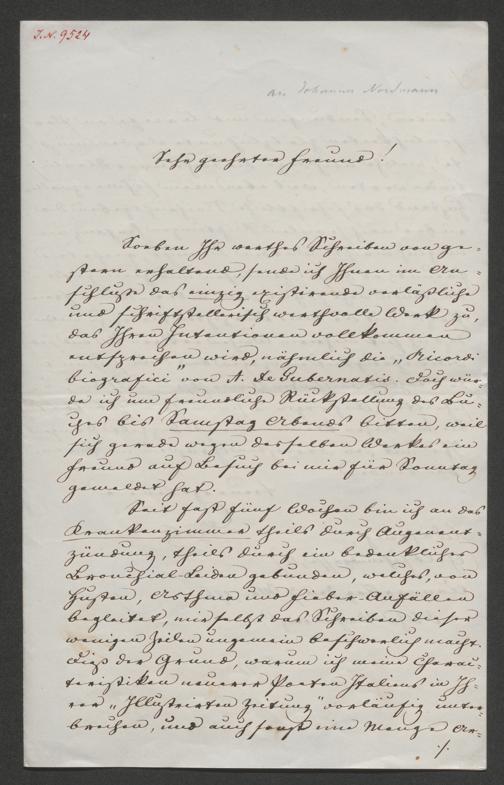 I.N. 9524
an Johannes Nordmann
Sehr geehrter Freund!
Soeben Ihr werthes Schreiben von ge-
stern erhaltend, sende ich Ihnen im An-
schluße das einzig existirende verläßliche
und schriftstellerisch werthvolle Werk zu,
das Ihren Intentionen vollkommen
entsprechen wird, nähmlich die „Ricordi
biografici" von A. de Gubernatis. Doch wür-
de ich um freundliche Rückstellung des Bu-
ches bis Samstag Abends bitten, weil
sich gerade wegen desselben Werkes ein
Freund auf Besuch bei mir für Sonntag
gemeldet hat.
Seit fast fünf Wochen bin ich an das
Krankenzimmer theils durch Augenent-
zündung, theils durch ein bedenkliches
Bronchial-Leiden gebunden, welches, von
Husten, Asthma und Fieber-Anfällen
begleitet, mir selbst das Schreiben dieser
wenigen Zeilen ungemein beschwerlich macht.
Dieß der Grund, warum ich meine Charac-
teristiken neuerer Poeten Italiens in Ih-
rer „Illustrirten Zeitung" vorläufig unter-
brechen, und auch sonst eine Menge Ar-
./.